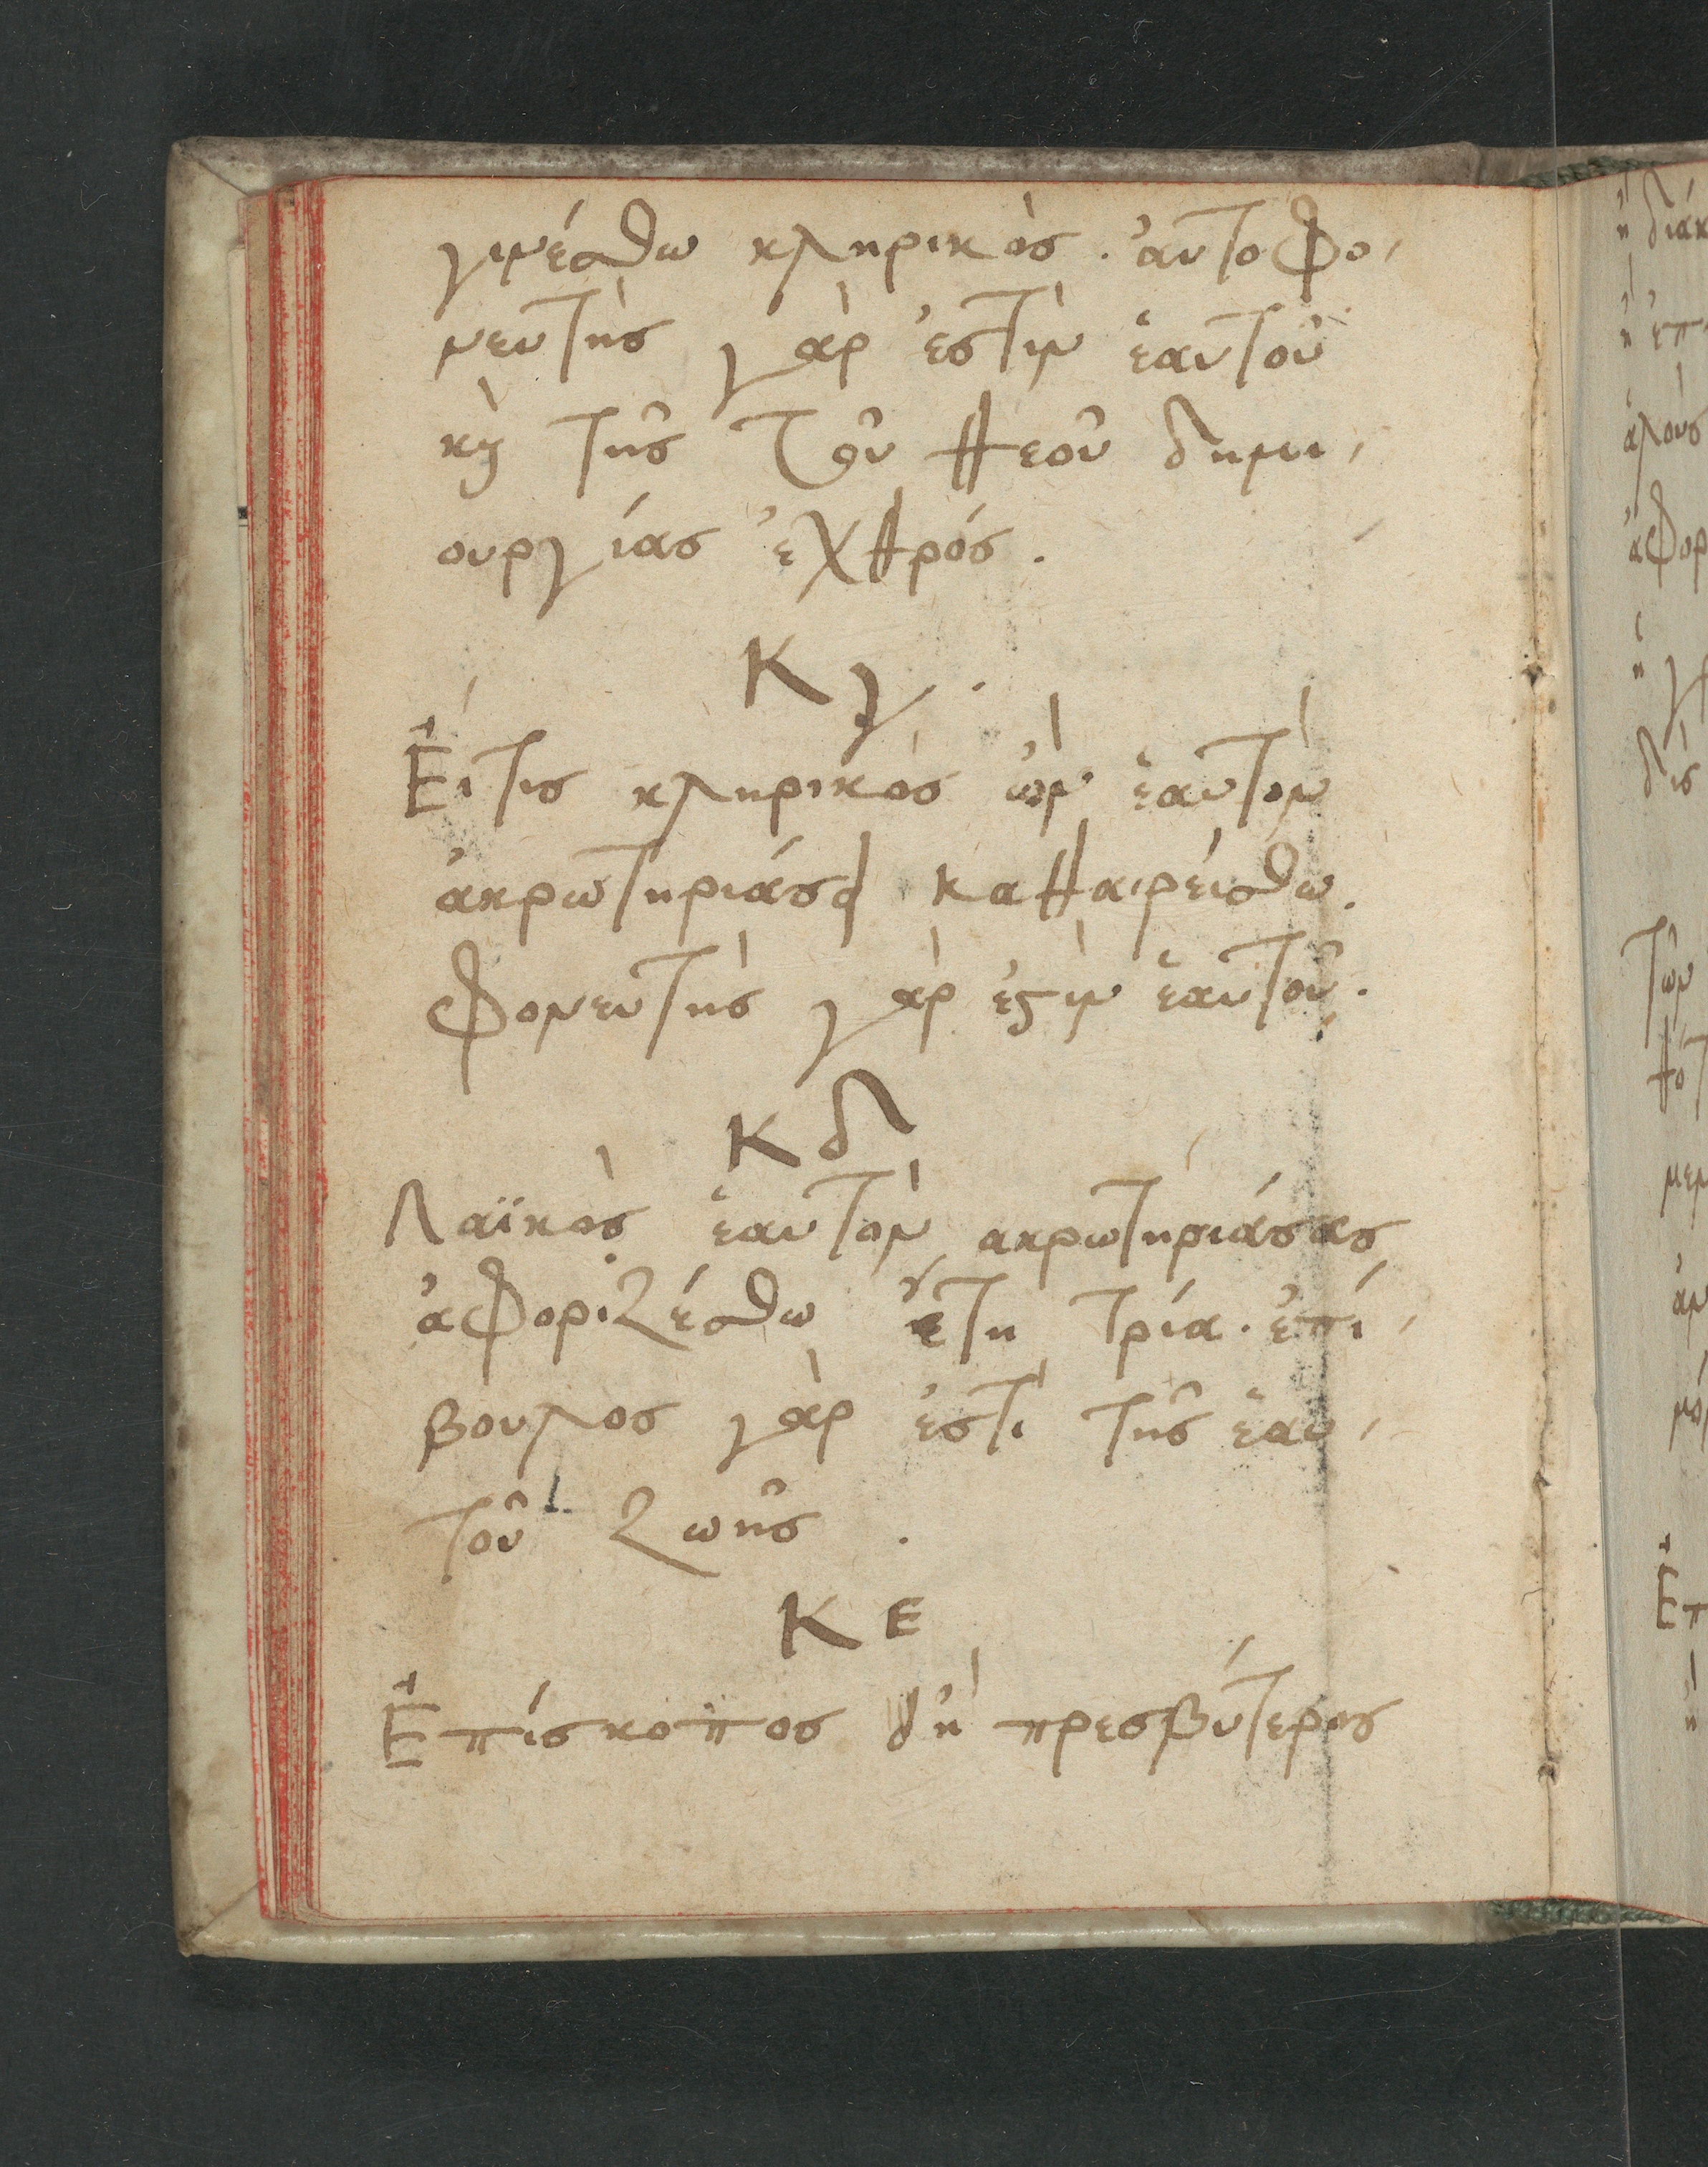 γινέσθω κληρικὸς. ἀυτοφο,
νευτὴς γὰρ ἐστὶν ἑαυτοῦ
κὴ τῆς τοῦ θεοῦ δημι,
ουργίας ἐχθρός.
Κγ.
Εἴτις κληρικὸς ὢν ἑαυτὸν
ἀκρωτηριάσει καθαιρείσθω.
φονευτὴς γὰρ ἐϛὶν ἑαυτοῦ.
Κδ
Λαϊκὸς ἑαυτὸν ακρωτηριάσας
ἀφοριζέσθω ἔτη τρία. ἐπί,
βουλος γὰρ ἐστὶ τῆς ἑαυ,
τοῦ ζωῆς.
ΚΕ
Ἐπίσκοπος δὴ πρεσβύτερος
ἢ
ἁλοὺς
τῶν